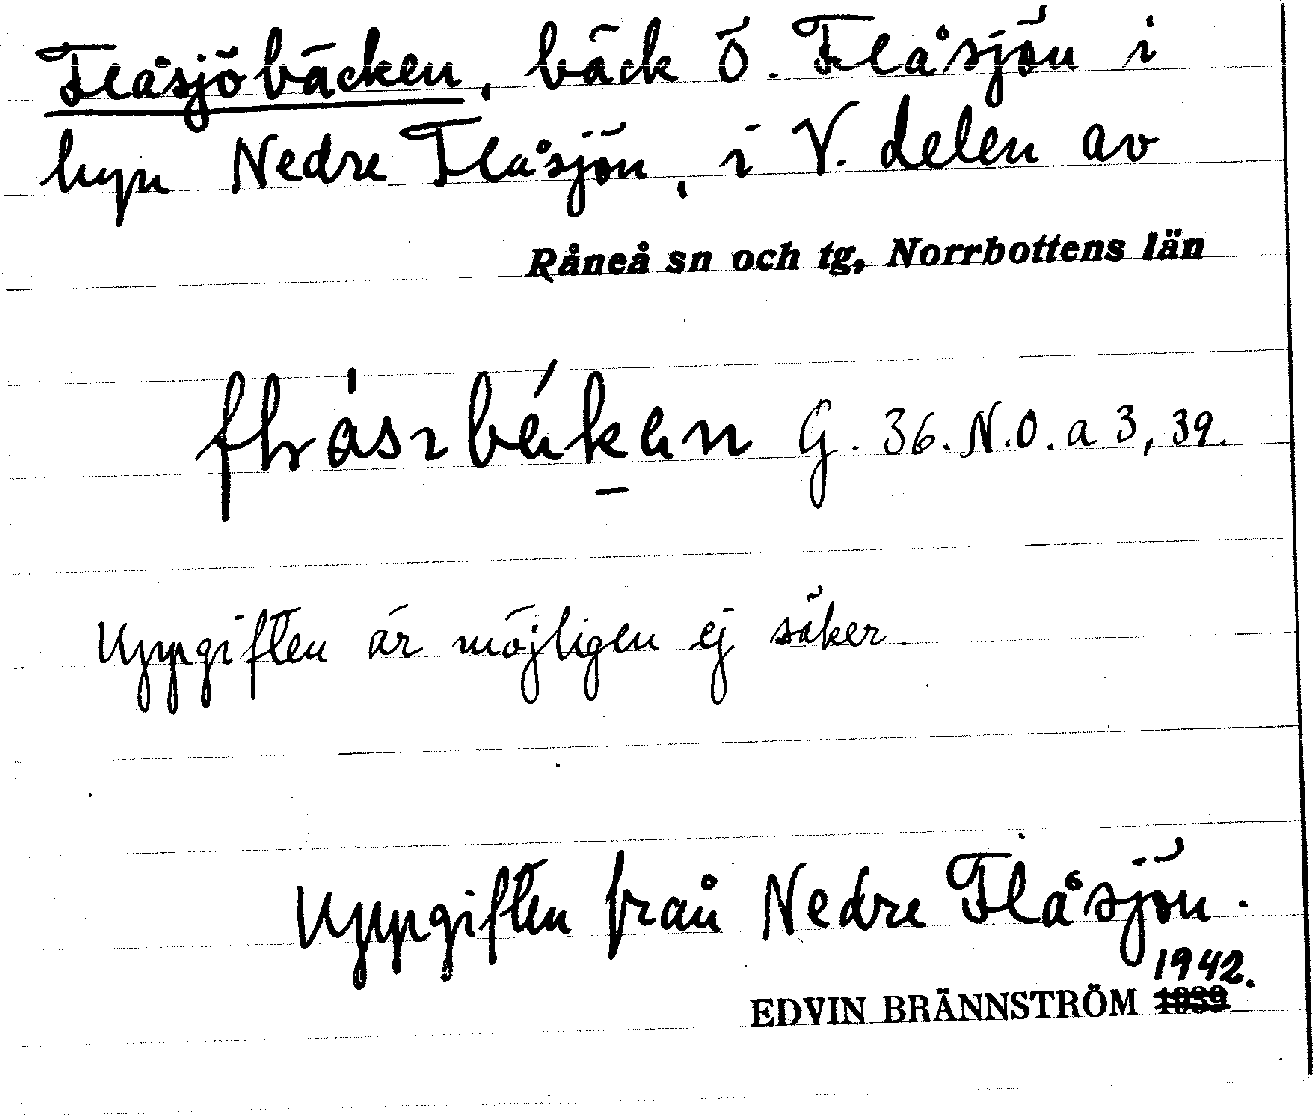 Flåsjöbäcken, bäck ö. Flåsjön i
byn Nedre Flåsjön, i V. delen av
Råneå sn och tg, Norrbottens län
G. 36. N.O. a 3, 39.
Uppgiften är möjligen ej säker.
Uppgiften från Nedre Flåsjön.
1942.
EDVIN BRÄNNSTRÖM 1939